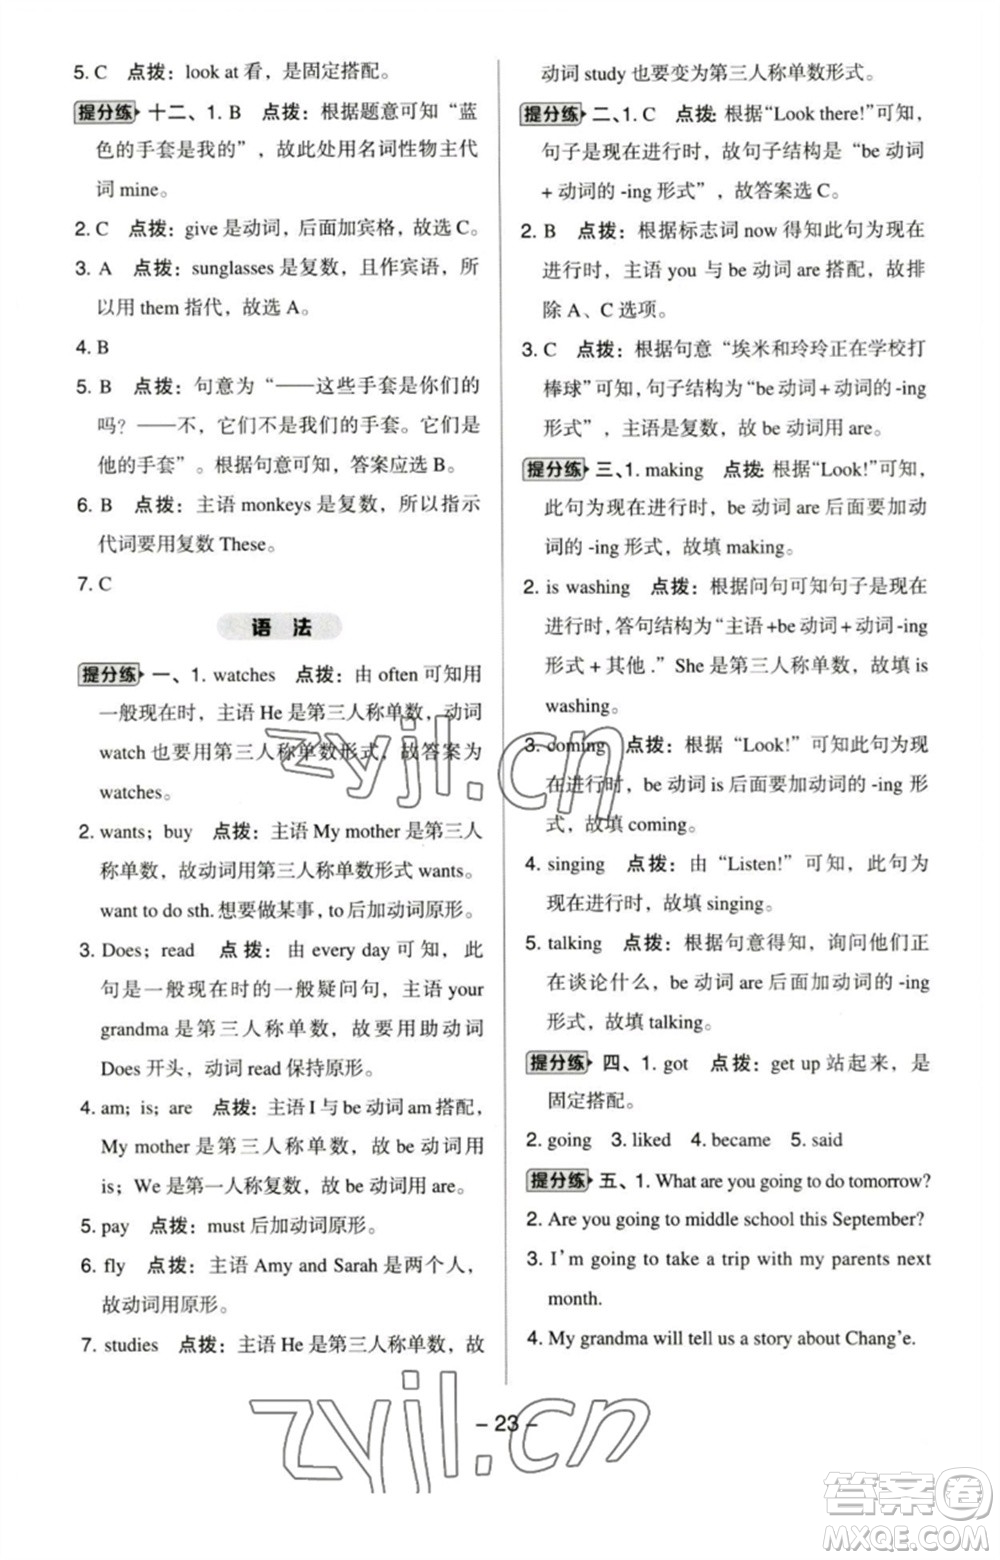 5. C 点拨：look at 看，是固定搭配。
提分练 十二、1. B 点拨：根据题意可知“蓝
色的手套是我的”，故此处用名词性物主代
词 mine。
2. C 点拨：give 是动词，后面加宾格，故选 C。
3. A 点拨：sunglasses 是复数，且作宾语，所
以用 them 指代，故选 A。
4. B
5. B 点拨：句意为“——这些手套是你们的
吗？——不，它们不是我们的手套。它们是
他的手套”。根据句意可知，答案应选 B。
6. B 点拨：主语 monkeys 是复数，所以指示
代词要用复数 These。
7. C
语 法
提分练 一、1. watches 点拨：由 often 可知用
一般现在时，主语 He 是第三人称单数，动词
watch 也要用第三人称单数形式，故答案为
watches。
2. wants；buy 点拨：主语 My mother 是第三人
称单数，故动词用第三人称单数形式 wants。
want to do sth. 想要做某事，to 后加动词原形。
3. Does；read 点拨：由 every day 可知，此
句是一般现在时的一般疑问句，主语 your
grandma 是第三人称单数，故要用助动词
Does 开头，动词 read 保持原形。
4. am；is；are 点拨：主语 I 与 be 动词 am 搭配，
My mother 是第三人称单数，故 be 动词用
is；We 是第一人称复数，故 be 动词用 are。
5. pay 点拨：must 后加动词原形。
6. fly 点拨：主语 Amy and Sarah 是两个人，
故动词用原形。
7. studies 点拨：主语 He 是第三人称单数，故
动词 study 也要变为第三人称单数形式。
提分练 二、1. C 点拨：根据“Look there!”可知，
句子是现在进行时，故句子结构是“be 动词
+ 动词的 -ing 形式”，故答案选 C。
2. B 点拨：根据标志词 now 得知此句为现在
进行时，主语 you 与 be 动词 are 搭配，故排
除 A、C 选项。
3. C 点拨：根据句意“埃米和玲玲正在学校打
棒球”可知，句子结构为“be 动词 + 动词的 -ing
形式”，主语是复数，故 be 动词用 are。
提分练 三、1. making 点拨：根据“Look!”可知，
此句为现在进行时，be 动词 are 后面要加动
词的 -ing 形式，故填 making。
2. is washing 点拨：根据问句可知句子是现在
进行时，答句结构为“主语 +be 动词 + 动词 -ing
形式 + 其他 .”She 是第三人称单数，故填 is
washing。
3. coming 点拨：根据“Look!”可知此句为现
在进行时，be 动词 is 后面要加动词的 -ing 形
式，故填 coming。
4. singing 点拨：由“Listen!”可知，此句为
现在进行时，故填 singing。
5. talking 点拨：根据句意得知，询问他们正
在谈论什么，be 动词 are 后面加动词的 -ing
形式，故填 talking。
提分练 四、1. got 点拨：get up 站起来，是
固定搭配。
2. going 3. liked 4. became 5. said
提分练 五、1. What are you going to do tomorrow?
2. Are you going to middle school this September?
3. I'm going to take a trip with my parents next
month.
4. My grandma will tell us a story about Chang'e.
- 23 -
zyjl.cn
zyjl.cn
答案圈
MXQE.COM